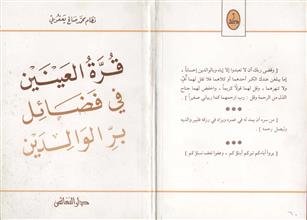 نظام محمد صالح يعقوبي
قرة العينين
في فضائل
بر الوالدين
دار النفائس
﴿ وقضى ربك أن لا تعبدوا إلا إياه وبالوالدين إحساناً ،
إما يبلغن عندك الكبر أحدهما أو كلاهما فلا تقل لهما أف
ولا تنهرهما ، وقل لهما قولاً كريماً ، واخفض لهما جناح
الذل من الرحمة وقل : رب ارحمهما كما ربياني صغيراً ﴾
* * *
( من سره أن يمد له في عمره ويزاد في رزقه فليبر والديه
وليصل رحمه )
* * *
( بروا آباءكم تبركم أبناؤكم ، وعفوا تعف نساؤكم )